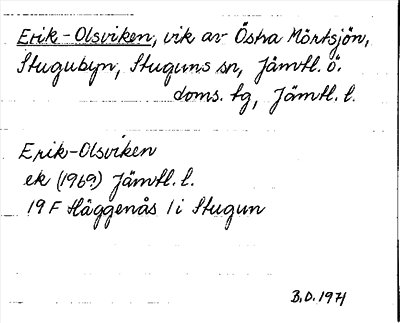 Erik-Olsviken, vik av Östra Mörtsjön,
Stugubyn, Stuguns sn, Jämtl. ö.
doms. tg, Jämtl. l.
Erik-Olsviken
ek (1969) Jämtl. l.
19 F Häggenås 1 i Stugun
B.O. 1971